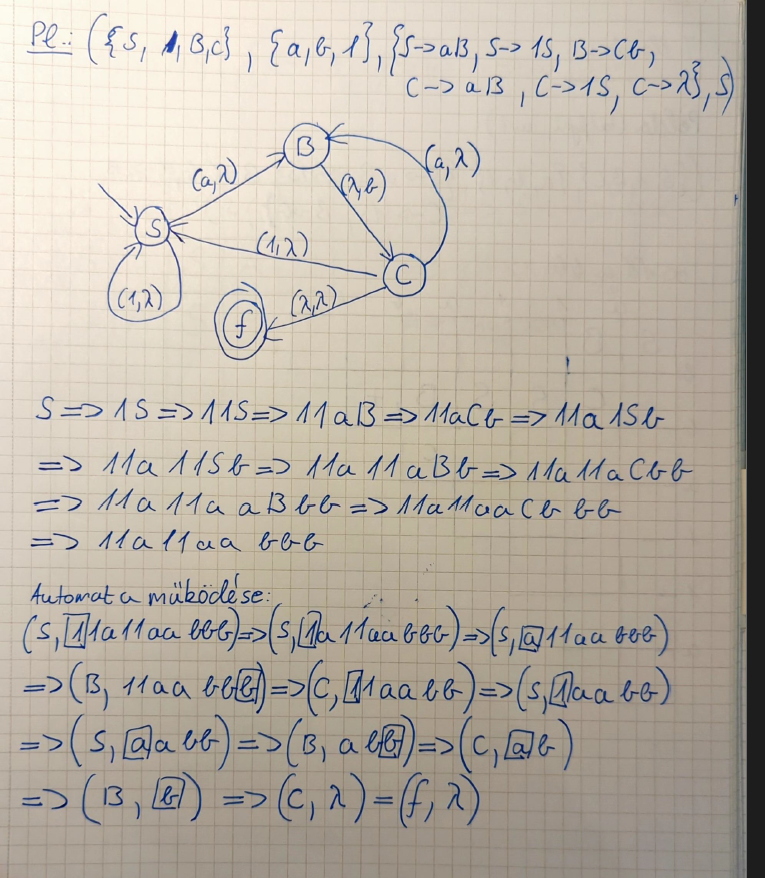 Pl.: ({S, B, C}, {a, b, 1}, {S->aB, S->1S, B->Cb,
C->aB, C->1S, C->λ}, S)
B
(a,λ)
(a,λ)
(λ,b)
S
(1,λ)
C
(1,λ)
(λ,λ)
f
S => 1S => 11S => 11aB => 11aCb => 11a1Sb
=> 11a11Sb => 11a11aBb => 11a11aCbb
=> 11a11aaBbb => 11a11aaCbbb
=> 11a11aabbb
Automata működése:
(S, 11a11aabbb) => (S, 1a11aabbb) => (S, a11aabbb)
=> (B, 11aabbb) => (C, 11aabb) => (S, 1aabb)
=> (S, aabb) => (B, abb) => (C, ab)
=> (B, b) => (C, λ) = (f, λ)